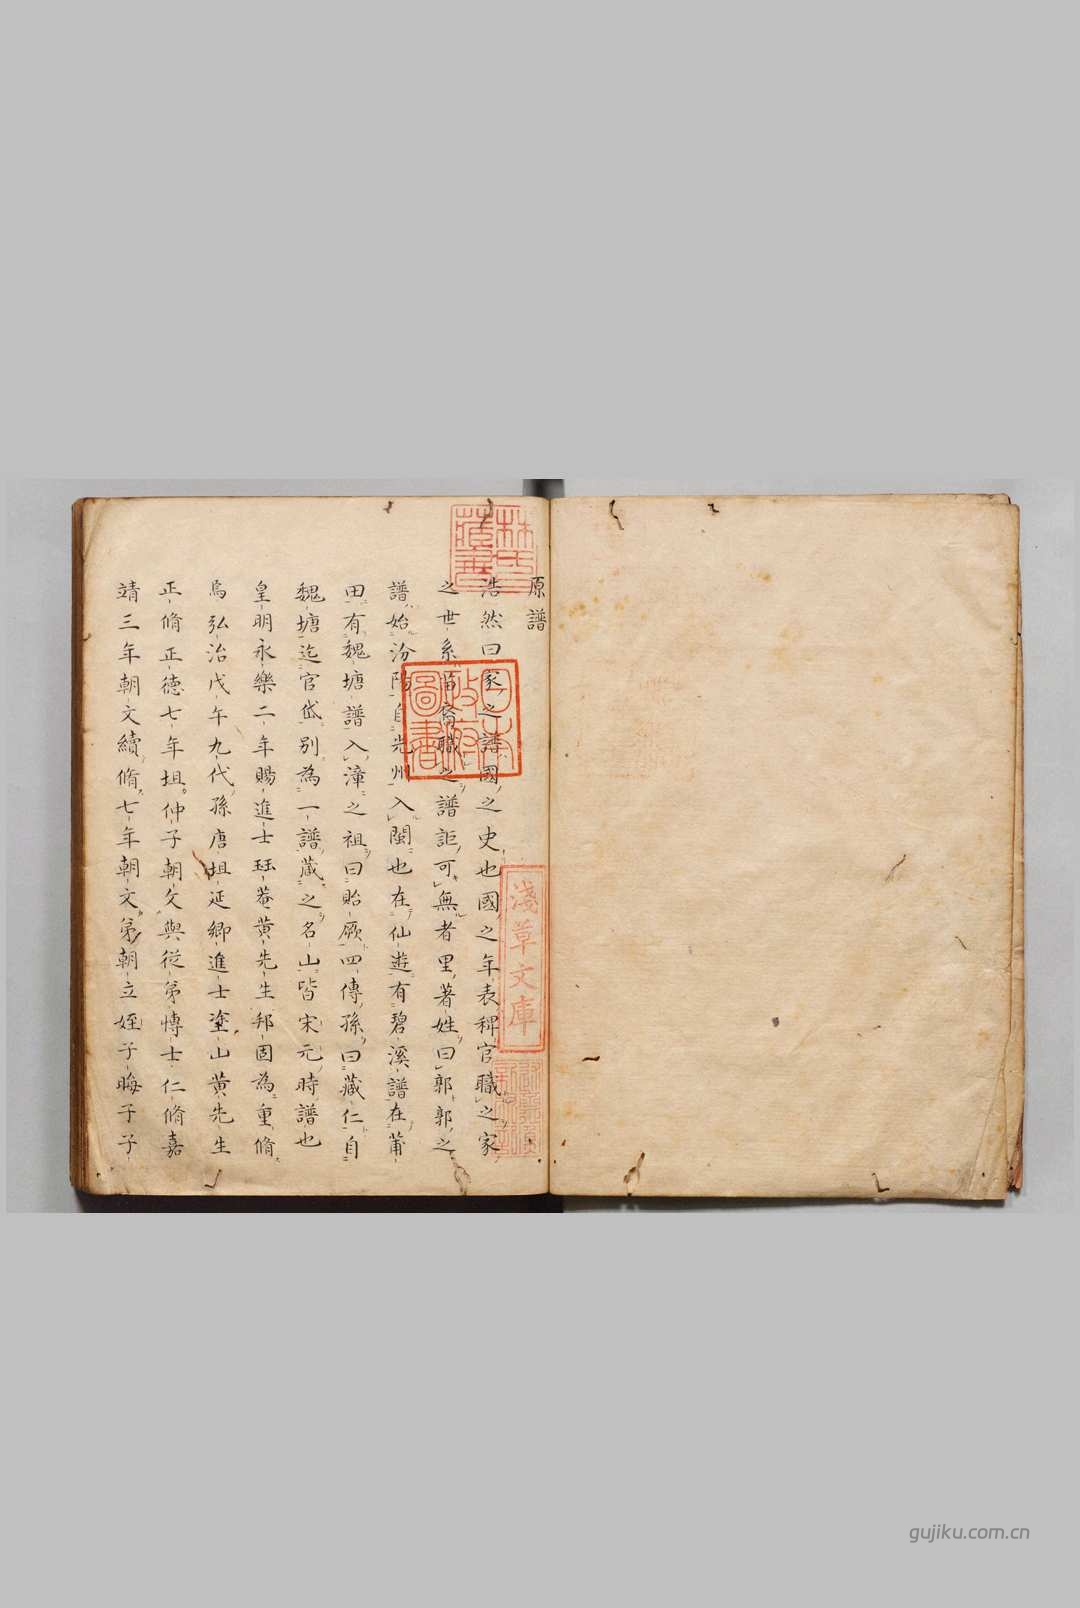 原譜
浩然曰家之譜國之史也國之年表稗官職之家
之世系苗裔職之譜詎可無者里著姓曰郭郭之
譜始汾陽自光州入閩也在仙遊有碧溪譜在莆
田有魏塘譜入漳之祖曰貽厥四傳孫曰藏仁自
魏塘迄官岱別為一譜藏之名山皆宋元時譜也
皇明永樂二年賜進士珏菴黃先生邦固為重脩
焉弘治戊午九代孫唐坦延鄉進士塗山黃先生
正脩正德七年坦仲子朝文與從弟博士仁脩嘉
靖三年朝文續脩七年朝文弟朝立姪子晦子子
林氏藏書
日本政府圖書
淺草文庫
gujiku.com.cn